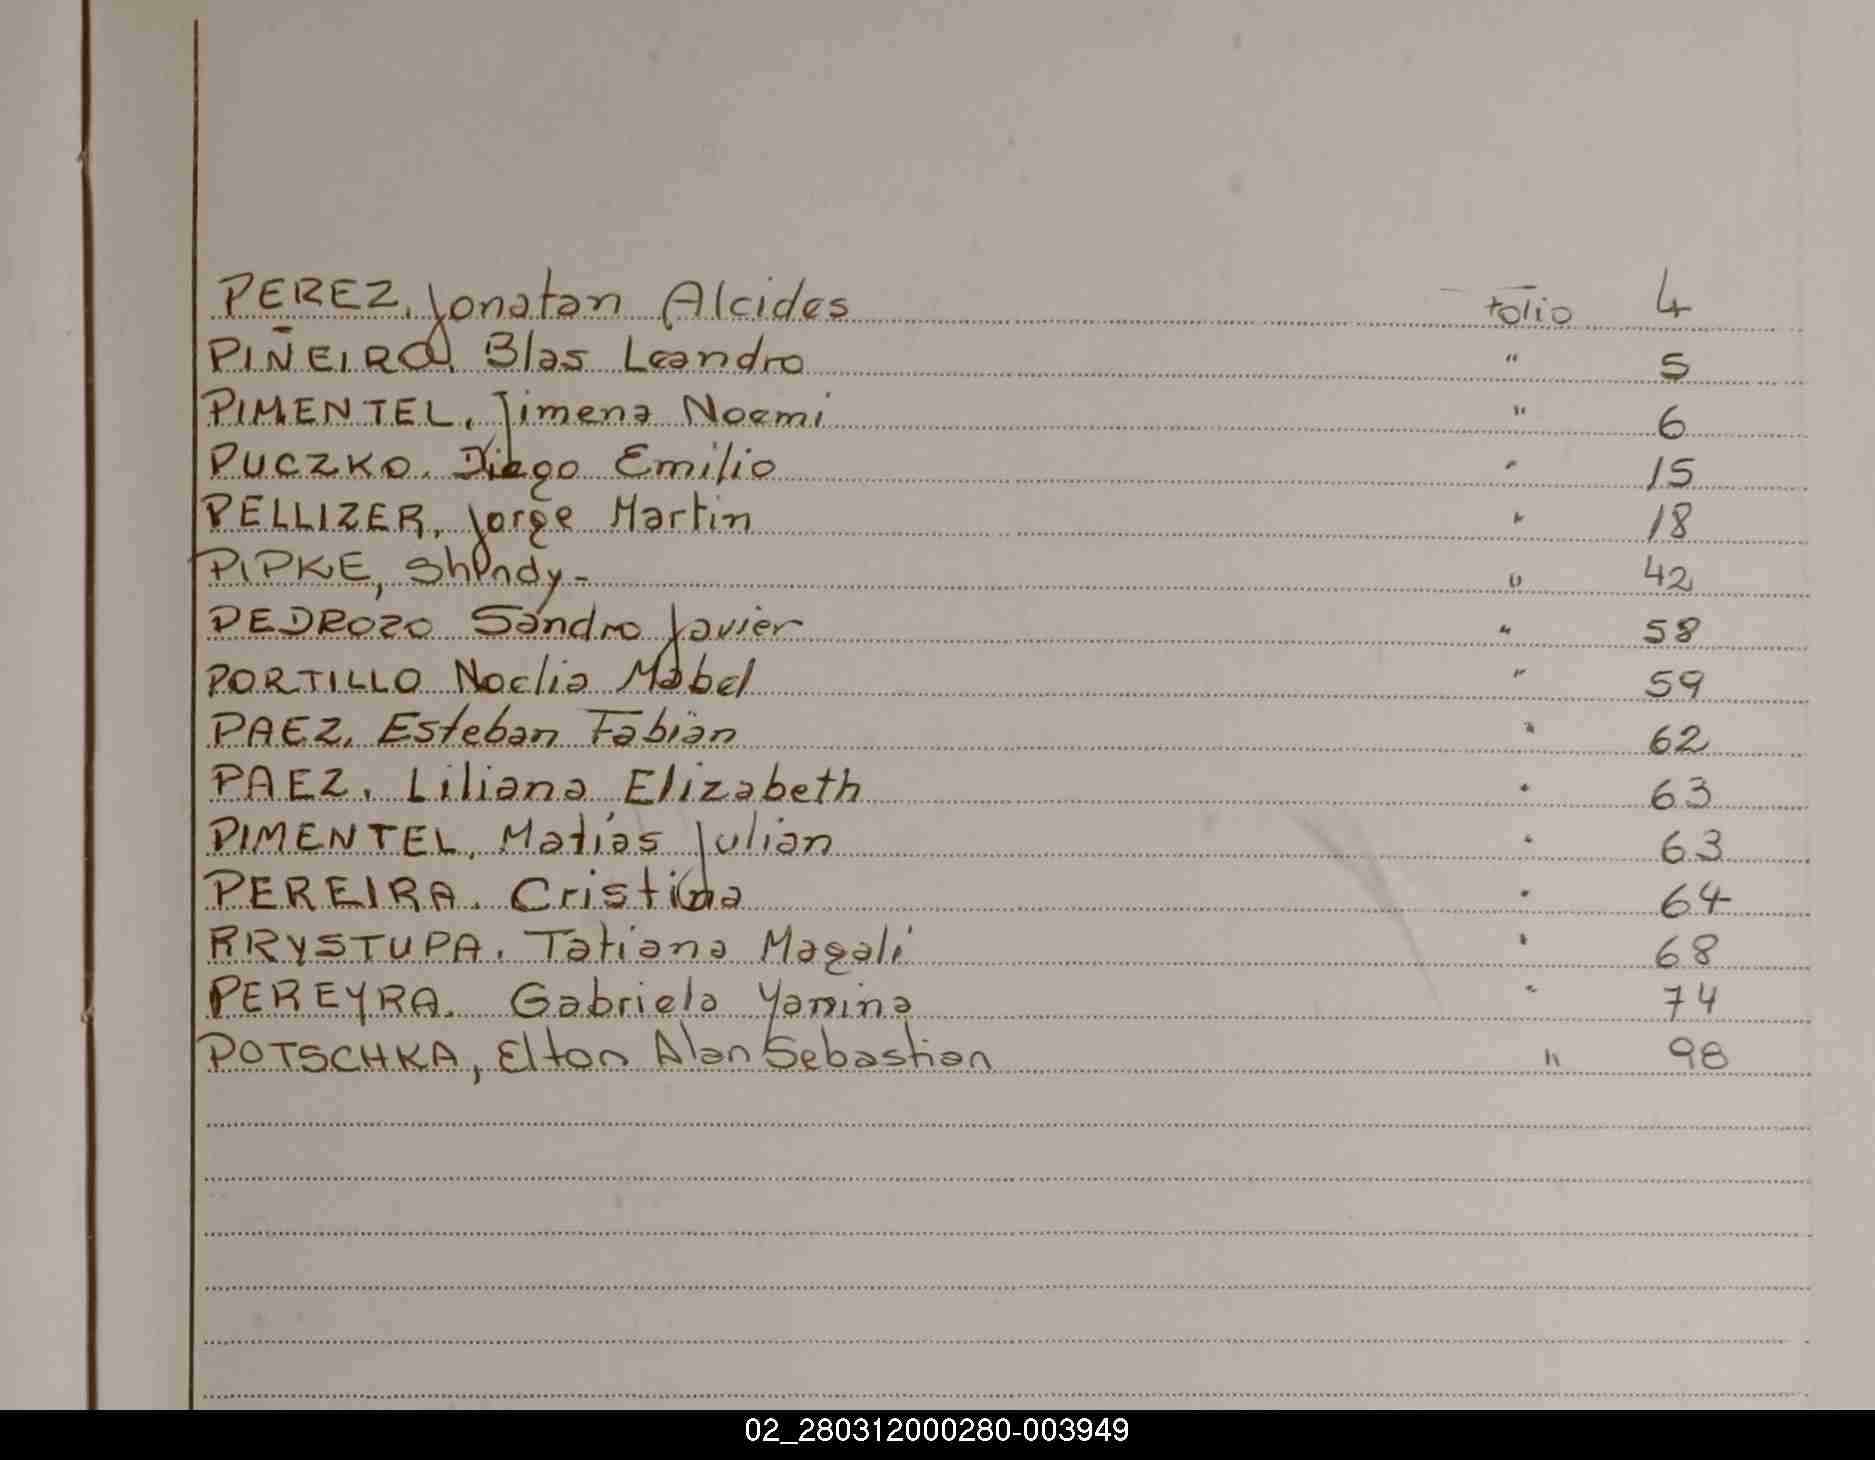 PEREZ, Jonatan Alcides folio 4
PIÑEIRO, Blas Leandro " 5
PIMENTEL, Jimena Noemi " 6
PUCZKO. Diego Emilio " 15
PELLIZER, Jorge Martin " 18
PIPKE, Shindy- " 42
PEDROZO Sandro Javier " 58
PORTILLO Noelia Mabel " 59
PAEZ, Esteban Fabián " 62
PAEZ, Liliana Elizabeth " 63
PIMENTEL, Matías Julian " 63
PEREIRA. Cristina " 64
RRYSTUPA. Tatiana Magali " 68
PEREYRA. Gabriela Yamina " 74
POTSCHKA, Elton Alan Sebastian " 98
02_280312000280-003949